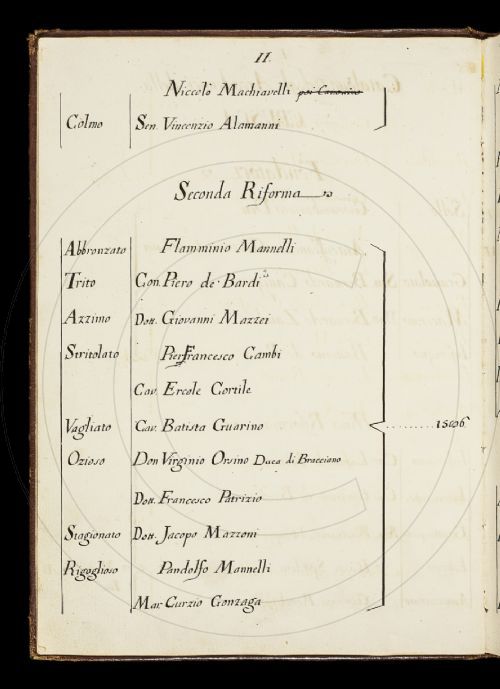 II.
Niccolò Machiavelli poi Canonico
Colmo Sen. Vincenzio Alamanni
Seconda Riforma
Abbronzato Flamminio Mannelli
Trito Con. Piero de' Bardi
Azzimo Dott. Giovanni Mazzei
Stritolato Pierfrancesco Cambi
Cav. Ercole Cortile
Vagliato Cav. Batista Guarino
Ozioso Don Virginio Orsino Duca di Bracciano
Dott. Francesco Patrizio
Stagionato Dott. Jacopo Mazzoni
Rigoglioso Pandolfo Mannelli
Mar Curzio Gonzaga